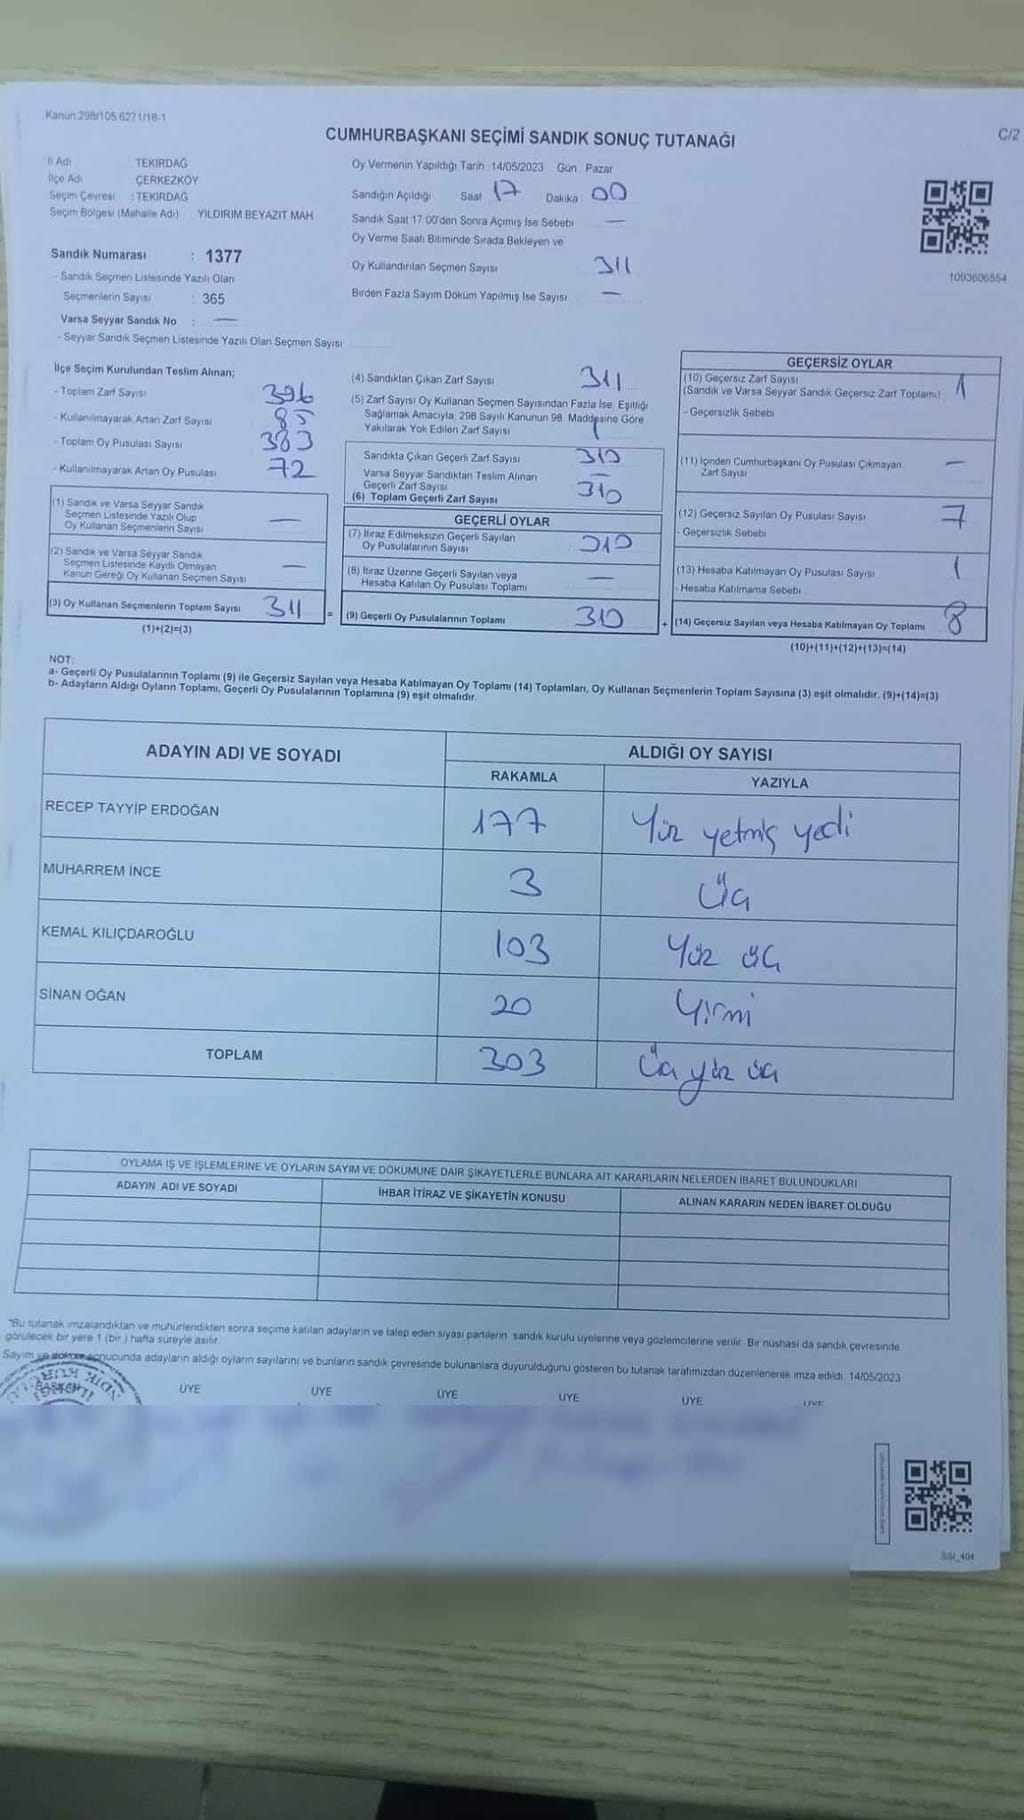 Kanun:298/105.627 1/18-1
CUMHURBAŞKANI SEÇİMİ SANDIK SONUÇ TUTANAĞI
C/2
İl Adı TEKİRDAĞ
İlçe Adı ÇERKEZKÖY
Seçim Çevresi : TEKİRDAĞ
Seçim Bölgesi (Mahalle Adı) YILDIRIM BEYAZIT MAH
Oy Vermenin Yapıldığı Tarih 14/05/2023 Gün Pazar
Sandığın Açıldığı Saat 17 Dakika 00
Sandık Saat 17 00'den Sonra Açımış İse Sebebi —
Oy Verme Saati Bitiminde Sırada Bekleyen ve
Oy Kullandırılan Seçmen Sayısı 311
Birden Fazla Sayım Döküm Yapılmış İse Sayısı —
1093606554
Sandık Numarası : 1377
- Sandık Seçmen Listesinde Yazılı Olan
Seçmenlerin Sayısı : 365
Varsa Seyyar Sandık No : —
- Seyyar Sandık Seçmen Listesinde Yazılı Olan Seçmen Sayısı
İlçe Seçim Kurulundan Teslim Alınan;
- Toplam Zarf Sayısı 396
- Kullanılmayarak Artan Zarf Sayısı 85
- Toplam Oy Pusulası Sayısı 383
- Kullanılmayarak Artan Oy Pusulası 72
(1) Sandık ve Varsa Seyyar Sandık
Seçmen Listesinde Yazılı Olup
Oy Kullanan Seçmenlerin Sayısı —
(2) Sandık ve Varsa Seyyar Sandık
Seçmen Listesinde Kayıtlı Olmayan
Kanun Gereği Oy Kullanan Seçmen Sayısı —
(3) Oy Kullanan Seçmenlerin Toplam Sayısı 311 =
(1)+(2)=(3)
(4) Sandıktan Çıkan Zarf Sayısı 311
(5) Zarf Sayısı Oy Kullanan Seçmen Sayısından Fazla İse, Eşitliği
Sağlamak Amacıyla, 298 Sayılı Kanunun 98 Maddesine Göre
Yakılarak Yok Edilen Zarf Sayısı 1
Sandıkta Çıkan Geçerli Zarf Sayısı 310
Varsa Seyyar Sandıktan Teslim Alınan
Geçerli Zarf Sayısı —
(6) Toplam Geçerli Zarf Sayısı 310
GEÇERLİ OYLAR
(7) İtiraz Edilmeksizin Geçerli Sayılan
Oy Pusulalarının Sayısı 310
(8) İtiraz Üzerine Geçerli Sayılan veya
Hesaba Katılan Oy Pusulası Toplamı —
(9) Geçerli Oy Pusulalarının Toplamı 310 +
GEÇERSİZ OYLAR
(10) Geçersiz Zarf Sayısı 1
(Sandık ve Varsa Seyyar Sandık Geçersiz Zarf Toplamı)
- Geçersizlik Sebebi
(11) İçinden Cumhurbaşkanı Oy Pusulası Çıkmayan
Zarf Sayısı —
(12) Geçersiz Sayılan Oy Pusulası Sayısı 7
- Geçersizlik Sebebi
(13) Hesaba Katılmayan Oy Pusulası Sayısı 1
- Hesaba Katılmama Sebebi
(14) Geçersiz Sayılan veya Hesaba Katılmayan Oy Toplamı 8
(10)+(11)+(12)+(13)=(14)
NOT:
a- Geçerli Oy Pusulalarının Toplamı (9) ile Geçersiz Sayılan veya Hesaba Katılmayan Oy Toplamı (14) Toplamları, Oy Kullanan Seçmenlerin Toplam Sayısına (3) eşit olmalıdır. (9)+(14)=(3)
b- Adayların Aldığı Oyların Toplamı, Geçerli Oy Pusulalarının Toplamına (9) eşit olmalıdır.
ADAYIN ADI VE SOYADI
ALDIĞI OY SAYISI
RAKAMLA YAZIYLA
RECEP TAYYİP ERDOĞAN 177 Yüz yetmiş yedi
MUHARREM İNCE 3 Üç
KEMAL KILIÇDAROĞLU 103 Yüz üç
SİNAN OĞAN 20 Yirmi
TOPLAM 303 Üç yüz üç
OYLAMA İŞ VE İŞLEMLERİNE VE OYLARIN SAYIM VE DÖKÜMÜNE DAİR ŞİKAYETLERLE BUNLARA AİT KARARLARIN NELERDEN İBARET BULUNDUKLARI
ADAYIN ADI VE SOYADI İHBAR İTİRAZ VE ŞİKAYETİN KONUSU ALINAN KARARIN NEDEN İBARET OLDUĞU
"Bu tutanak imzalandıktan ve mühürlendikten sonra seçime katılan adayların ve talep eden siyasi partilerin sandık kurulu üyelerine veya gözlemcilerine verilir. Bir nüshası da sandık çevresinde
görülecek bir yere 1 (bir ) hafta süreyle asılır.
Sayım ve döküm sonucunda adayların aldığı oyların sayılarını ve bunların sandık çevresinde bulunanlara duyurulduğunu gösteren bu tutanak tarafımızdan düzenlenerek imza edildi. 14/05/2023
ÜYE ÜYE ÜYE ÜYE ÜYE ÜYE